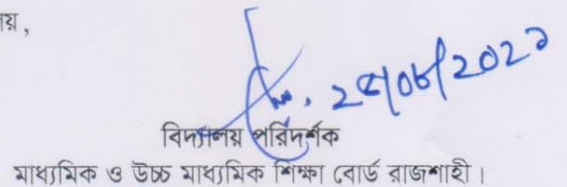 য়,
বিদ্যালয় পরিদর্শক
মাধ্যমিক ও উচ্চ মাধ্যমিক শিক্ষা বোর্ড রাজশাহী।